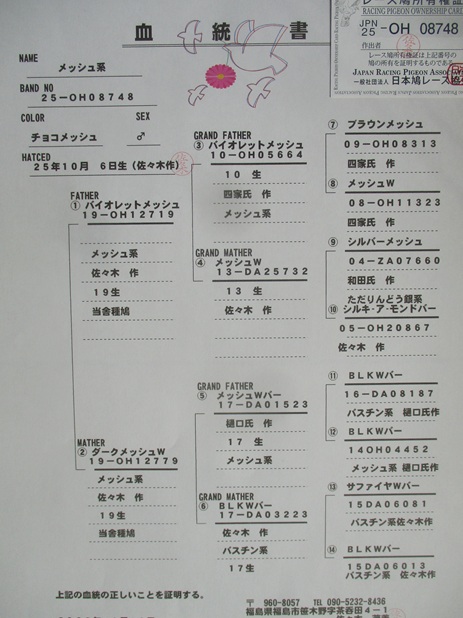 血統書
RACING PIGEON OWNERSHIP CARD
JPN
25-OH 08748
作出者
レース鳩所有権証は上記番号の
鳩の所有を証明するものである
JAPAN RACING PIGEON ASSOC
一般社団法人 日本鳩レース協
NAME
メッシュ系
BAND NO
25-OH08748
COLOR SEX
チョコメッシュ ♂
HATCED
25年10月 6日生(佐々木作)
FATHER
① バイオレットメッシュ
19-OH12719
メッシュ系
佐々木 作
19生
当舎種鳩
MATHER
② ダークメッシュW
19-OH12779
メッシュ系
佐々木 作
19生
当舎種鳩
GRAND FATHER
③ バイオレットメッシュ
10-OH05664
10 生
四家氏 作
メッシュ系
GRAND MATHER
④ メッシュW
13-DA25732
13 生
佐々木 作
GRAND FATHER
⑤ メッシュWバー
17-DA01523
樋口氏 作
17 生
メッシュ系
GRAND MATHER
⑥ BLKWバー
17-DA03223
佐々木 作
バスチン系
17生
⑦ ブラウンメッシュ
09-OH08313
四家氏 作
⑧ メッシュW
08-OH11323
四家氏 作
⑨ シルバーメッシュ
04-ZA07660
和田氏 作
ただりんどう銀系
⑩ シルキ・ア・モンドバー
05-OH20867
佐々木 作
⑪ BLKWバー
16-DA08187
バスチン系 樋口氏作
⑫ BLKWバー
14OH04452
メッシュ系 樋口氏作
⑬ サファイヤWバー
15DA06081
バスチン系佐々木作
⑭ BLKWバー
15DA06013
バスチン系 佐々木 作
上記の血統の正しいことを証明する。
〒 960-8057 TEL 090-5232-8436
福島県福島市笹木野字茶呑田4-1